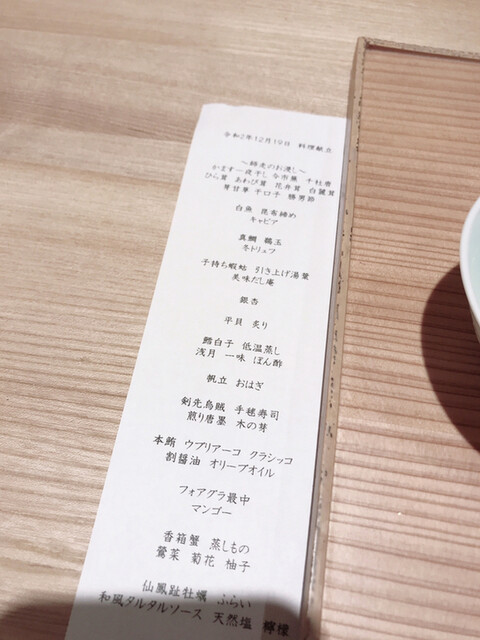 令和2年12月19日 料理献立
〜師走のお浸し〜
かます一夜干し 今市蕪 干社唐
ひら茸 あわび茸 花弁茸 白舞茸
芽甘草 干口子 勝男節
白魚 昆布締め
キャビア
真鯛 鶉玉
冬トリュフ
子持ち蝦蛄 引き上げ湯葉
美味だし庵
銀杏
平貝 炙り
鱈白子 低温蒸し
浅月 一味 ぽん酢
帆立 おはぎ
剣先烏賊 手毬寿司
煎り唐墨 木の芽
本鮪 ウブリアーコ クラシッコ
割醤油 オリーブオイル
フォアグラ最中
マンゴー
香箱蟹 蒸しもの
鶯菜 菊花 柚子
仙鳳趾牡蠣 ふらい
和風タルタルソース 天然塩 檸檬